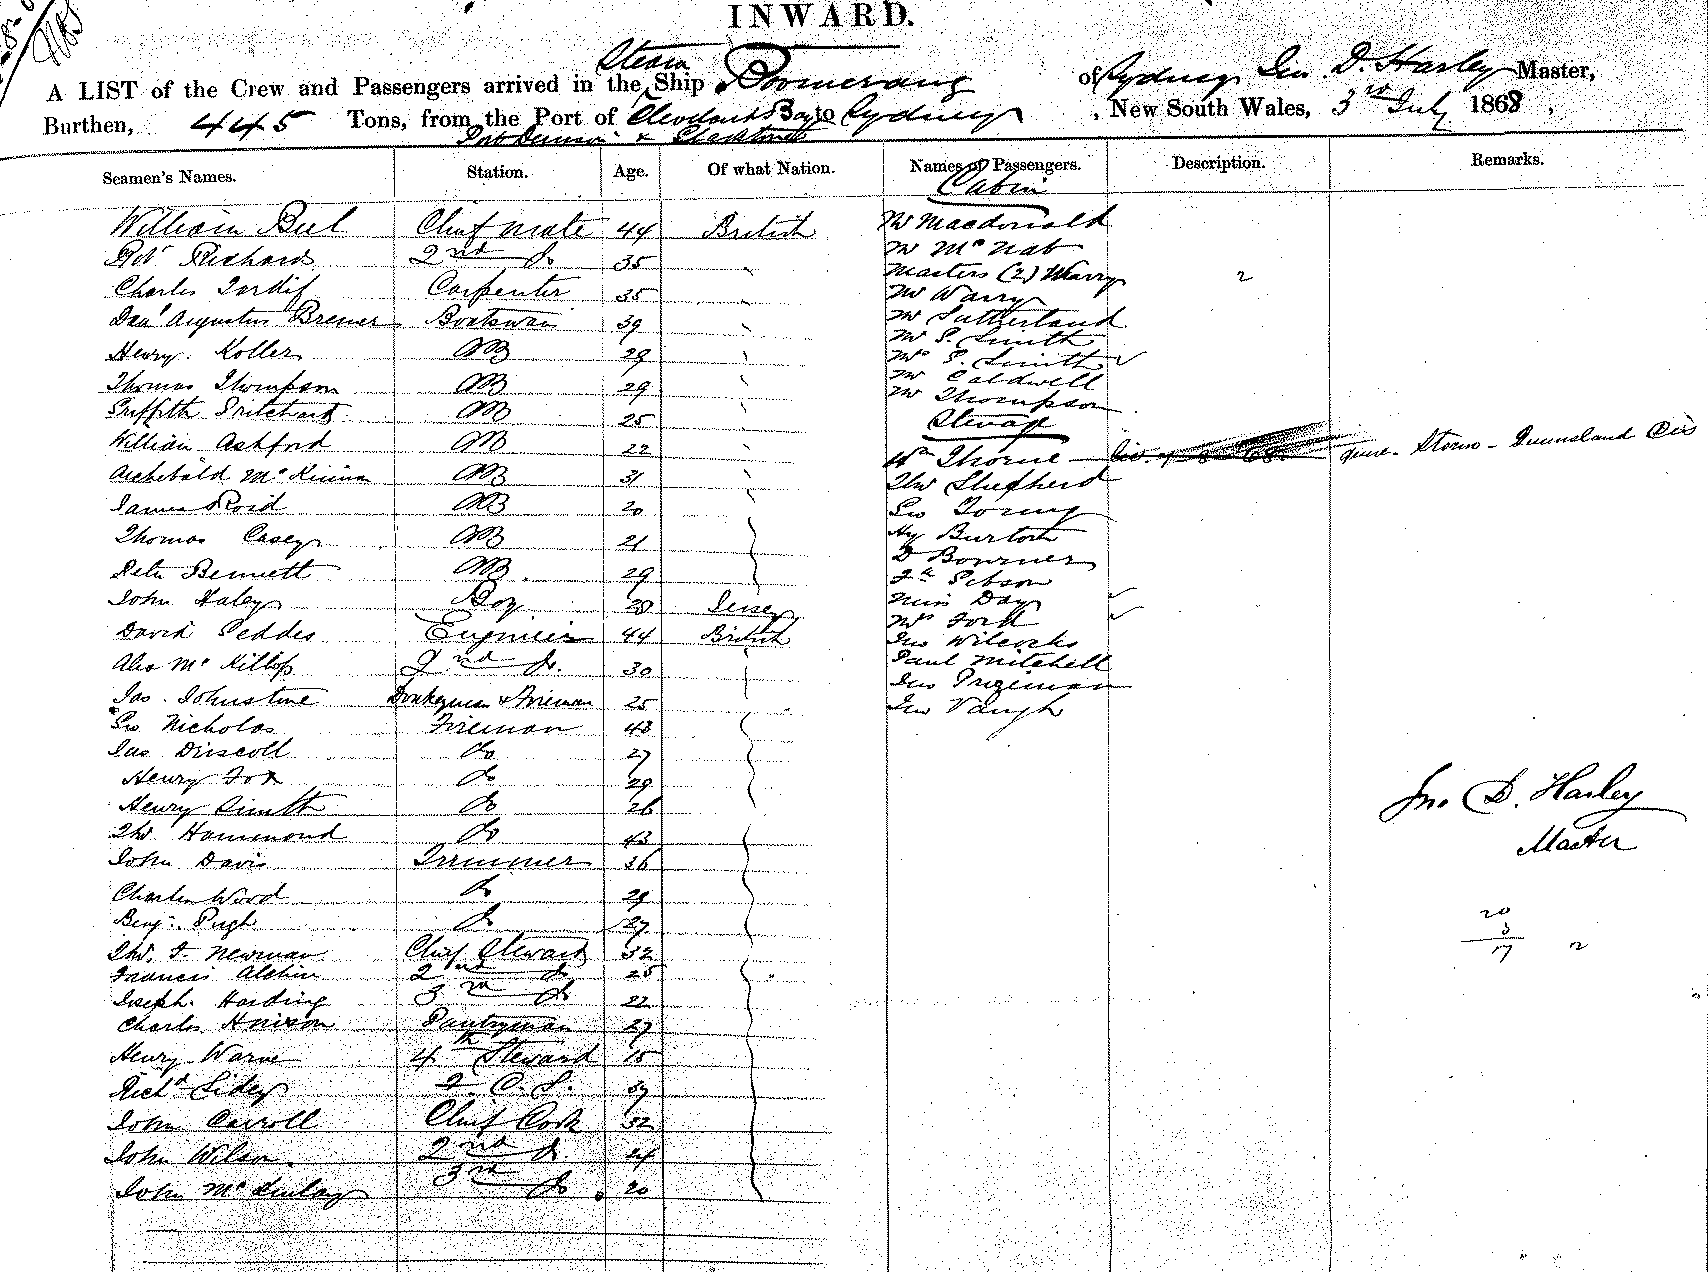 INWARD.
A LIST of the Crew and Passengers arrived in the Steam Ship Boomerang of Sydney Jno D. Harley Master,
Burthen, 445 Tons, from the Port of Cleveland Bay to Sydney, New South Wales, 3rd July 1868.
Port Denison &
Seamen's Names. Station. Age. Of what Nation. Names of Passengers. Description. Remarks.
Cabin
William Bell Chief Mate 44 British Mr Macdonald
Robt Richards 2nd do 35 Mr McNab
Charles Tardif Carpenter 35 Masters (2) Warry 2
Mr Warry
Danl Augustus Bremer Boatswain 39 Mr Sutherland
Mr S. Smith
Henry Koller AB 29 Mrs S. Smith
Mr Caldwell
Thomas Thompson AB 29 Mr Thompson
Griffith Pritchard AB 25 Steerage
William Ashford AB 22 Wm Thorne
Archibald McKinnon AB 31 Thos Shepherd
James Reid AB 20 Geo Young
Thomas Casey AB 21 Hy Burton
D Bowmer
Peter Bennett AB 29
John Haley Boy 20 Jersey Miss Day
David Peddis Engineer 44 British Mrs Ford
Jno Wilcocks
Alex McKillop 2nd do. 30 Paul Mitchell
Jas. Johnstone Donkeyman & Fireman 25 Jno Prizeman
Geo Nicholas Fireman 43 Jno Vaugh
Jas Driscoll do 27
Henry Fox do 29
Henry Smith do 26
Thos Hammond do 43
Jno D. Harley
Master
John Davis Trimmer 36
Charles Wood do 29
Benj. Pugh do 27
20
3
17 2
Thos. F. Newman Chief Steward 32
Francis Alchin 2nd do 25
Joseph Harding 3rd do 22
Charles Pantryman 27
Henry Warne 4th Steward 15
Richd 2 C. S. 39
John Carroll Chief Cook 32
John Wilson 2nd do 24
John McKinlay 3rd do 20